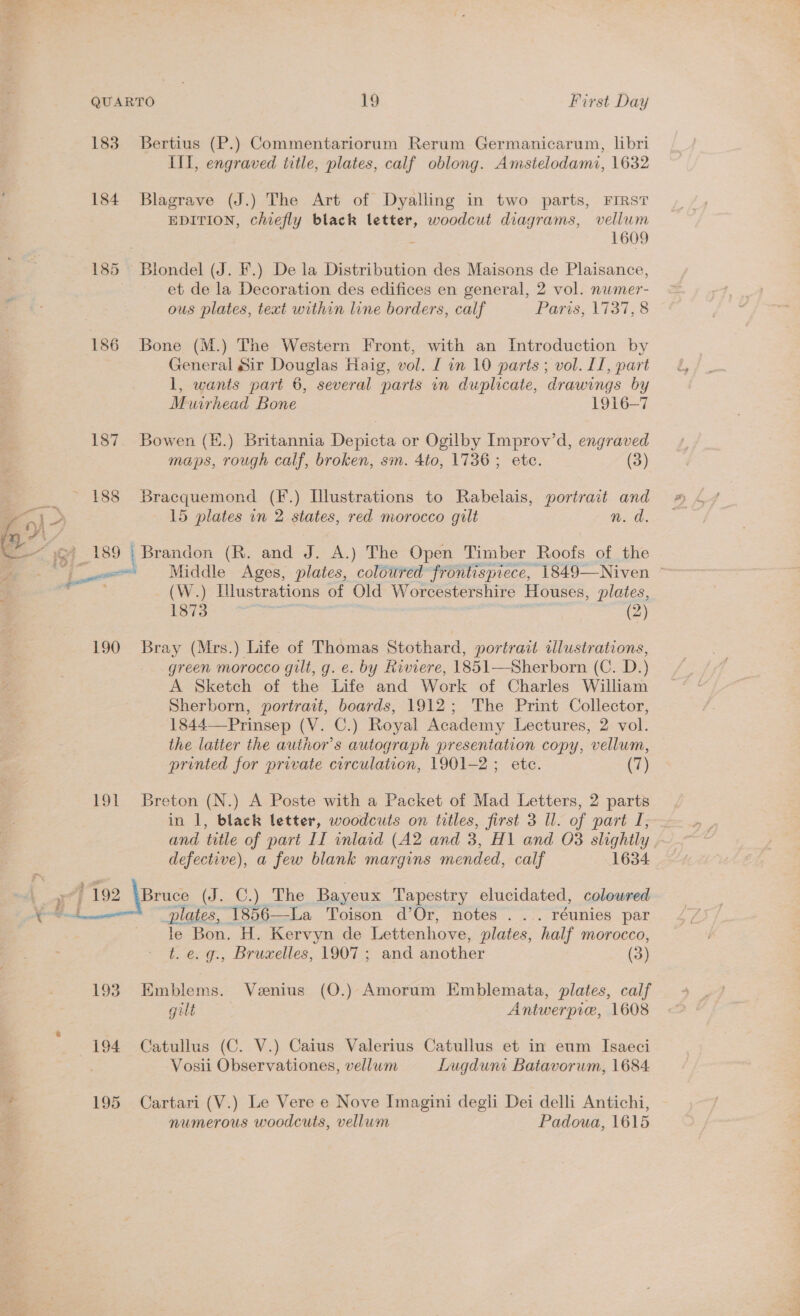 QUARTO 19 First Day
183 Bertius (P.) Commentariorum Rerum Germanicarum, libri
III, engraved title, plates, calf oblong. Amstelodami, 1632
184 Blagrave (J.) The Art of Dyalling in two parts, FIRST
EDITION, chiefly black letter, woodcut diagrams, vellum
1609
185 Blondel (J. F.) De la Distribution des Maisons de Plaisance,
et de la Decoration des edifices en general, 2 vol. numer-
ous plates, text within line borders, calf Paris, 1737, 8
186 Bone (M.) The Western Front, with an Introduction by
General Sir Douglas Haig, vol. I in 10 parts; vol. II, part
1, wants part 6, several parts in duplicate, drawings by
Muirhead Bone 1916–7
187 Bowen (E.) Britannia Depicta or Ogilby Improv'd, engraved
maps, rough calf, broken, sm. 4to, 1736; etc. (3)
188 Bracquemond (F.) Illustrations to Rabelais, portrait and
15 plates in 2 states, red morocco gilt n. d.
189 Brandon (R. and J. A.) The Open Timber Roofs of the
Middle Ages, plates, coloured frontispiece, 1849—Niven
(W.) Illustrations of Old Worcestershire Houses, plates,
1873 (2)
190 Bray (Mrs.) Life of Thomas Stothard, portrait illustrations,
green morocco gilt, g. e. by Riviere, 1851—Sherborn (C. D.)
A Sketch of the Life and Work of Charles William
Sherborn, portrait, boards, 1912; The Print Collector,
1844—Prinsep (V. C.) Royal Academy Lectures, 2 vol.
the latter the author's autograph presentation copy, vellum,
printed for private circulation, 1901–2; etc. (7)
191 Breton (N.) A Poste with a Packet of Mad Letters, 2 parts
in 1, black letter, woodcuts on titles, first 3 ll. of part I,
and title of part II inlaid (A2 and 3, H1 and O3 slightly
defective), a few blank margins mended, calf 1634
192 Bruce (J. C.) The Bayeux Tapestry elucidated, coloured
plates, 1856—La Toison d'Or, notes . . . réunies par
le Bon. H. Kervyn de Lettenhove, plates, half morocco,
t. e. g., Bruxelles, 1907; and another (3)
193 Emblems. Vænius (O.) Amorum Emblemata, plates, calf
gilt Antwerpiæ, 1608
194 Catullus (C. V.) Caius Valerius Catullus et in eum Isaeci
Vosii Observationes, vellum Lugduni Batavorum, 1684
195 Cartari (V.) Le Vere e Nove Imagini degli Dei delli Antichi,
numerous woodcuts, vellum Padoua, 1615